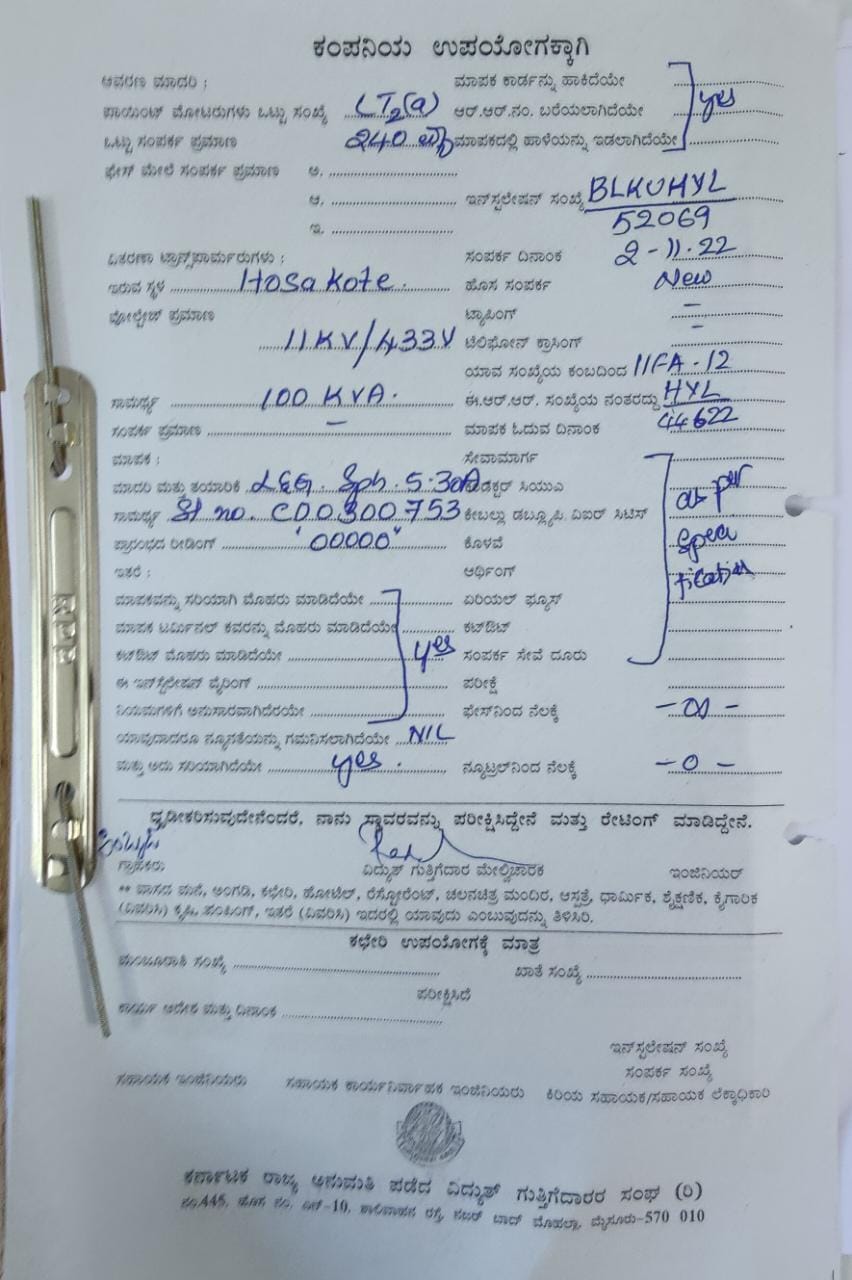 ಕಂಪನಿಯ ಉಪಯೋಗಕ್ಕಾಗಿ
ಆವರಣ ಮಾದರಿ : ಮಾಪಕ ಕಾರ್ಡನ್ನು ಹಾಕಿದೆಯೇ
ಪಾಯಿಂಟ್ ಮೋಟರುಗಳು ಒಟ್ಟು ಸಂಖ್ಯೆ LT2(a) ಆರ್.ಆರ್.ನಂ. ಬರೆಯಲಾಗಿದೆಯೇ yes
ಒಟ್ಟು ಸಂಪರ್ಕ ಪ್ರಮಾಣ 240 ಮಾಪಕದಲ್ಲಿ ಹಾಳೆಯನ್ನು ಇಡಲಾಗಿದೆಯೇ
ಫೇಸ್ ಮೇಲೆ ಸಂಪರ್ಕ ಪ್ರಮಾಣ ಅ.
ಆ. ಇನ್‌ಸ್ಟಲೇಷನ್ ಸಂಖ್ಯೆ BLKUHYL
ಇ. 52069
ವಿತರಣಾ ಟ್ರಾನ್ಸ್‌ಫಾರ್ಮರುಗಳು : ಸಂಪರ್ಕ ದಿನಾಂಕ 2-11-22
ಇರುವ ಸ್ಥಳ Hosakote. ಹೊಸ ಸಂಪರ್ಕ New
ವೋಲ್ಟೇಜ್ ಪ್ರಮಾಣ ಟ್ಯಾಪಿಂಗ್ –
11KV/433V ಟೆಲಿಫೋನ್ ಕ್ರಾಸಿಂಗ್ –
ಯಾವ ಸಂಖ್ಯೆಯ ಕಂಬದಿಂದ 11FA-12
ಸಾಮರ್ಥ್ಯ 100 KVA. ಈ.ಆರ್.ಆರ್. ಸಂಖ್ಯೆಯ ನಂತರದ್ದು HYL
ಸಂಪರ್ಕ ಪ್ರಮಾಣ – ಮಾಪಕ ಓದುವ ದಿನಾಂಕ 44622
ಮಾಪಕ : ಸೇವಾಮಾರ್ಗ
ಮಾದರಿ ಮತ್ತು ತಯಾರಿಕೆ L&G. Sph. 5-30A. ಸಿಯುಎ
ಸಾಮರ್ಥ್ಯ Sl no. C00300753 ಕೇಬಲ್ಲು ಡಬ್ಲ್ಯೂಪಿ. ವಿಐಆರ್ ಸಿಟಿಸ್ as per
ಪ್ರಾರಂಭದ ರೀಡಿಂಗ್ "00000" ಕೊಳವೆ Speci
ಇತರೆ : ಆರ್ಥಿಂಗ್ fication
ಮಾಪಕವನ್ನು ಸರಿಯಾಗಿ ಮೊಹರು ಮಾಡಿದೆಯೇ ಏರಿಯಲ್ ಫ್ಯೂಸ್
ಮಾಪಕ ಟರ್ಮಿನಲ್ ಕವರನ್ನು ಮೊಹರು ಮಾಡಿದೆಯೇ ಕಟ್‌ಔಟ್
ಕಟ್‌ಔಟ್ ಮೊಹರು ಮಾಡಿದೆಯೇ yes ಸಂಪರ್ಕ ಸೇವೆ ದೂರು
ಈ ಇನ್‌ಸ್ಟಲೇಷನ್ ವೈರಿಂಗ್ ಪರೀಕ್ಷೆ
ನಿಯಮಗಳಿಗೆ ಅನುಸಾರವಾಗಿದೆರಯೇ ಫೇಸ್‌ನಿಂದ ನೆಲಕ್ಕೆ
ಯಾವುದಾದರೂ ನ್ಯೂನತೆಯನ್ನು ಗಮನಿಸಲಾಗಿದೆಯೇ NIL
ಮತ್ತು ಅದು ಸರಿಯಾಗಿದೆಯೇ yes. ನ್ಯೂಟ್ರಲ್‌ನಿಂದ ನೆಲಕ್ಕೆ –0–
ಧೃಡೀಕರಿಸುವುದೇನೆಂದರೆ, ನಾನು ಸ್ಥಾವರವನ್ನು ಪರೀಕ್ಷಿಸಿದ್ದೇನೆ ಮತ್ತು ರೇಟಿಂಗ್ ಮಾಡಿದ್ದೇನೆ.
ಗ್ರಾಹಕರು ವಿದ್ಯುತ್ ಗುತ್ತಿಗೆದಾರ ಮೇಲ್ವಿಚಾರಕ ಇಂಜಿನಿಯರ್
** ವಾಸದ ಮನೆ, ಅಂಗಡಿ, ಕಛೇರಿ, ಹೋಟೆಲ್, ರೆಸ್ಟೋರೆಂಟ್, ಚಲನಚಿತ್ರ ಮಂದಿರ, ಆಸ್ಪತ್ರೆ, ಧಾರ್ಮಿಕ, ಶೈಕ್ಷಣಿಕ, ಕೈಗಾರಿಕ
(ವಿವರಿಸಿ) ಕೃಷಿ, ಪಂಪಿಂಗ್, ಇತರೆ (ವಿವರಿಸಿ) ಇದರಲ್ಲಿ ಯಾವುದು ಎಂಬುವುದನ್ನು ತಿಳಿಸಿರಿ.
ಕಛೇರಿ ಉಪಯೋಗಕ್ಕೆ ಮಾತ್ರ
ಮಂಜೂರಾತಿ ಸಂಖ್ಯೆ ಖಾತೆ ಸಂಖ್ಯೆ
ಪರೀಕ್ಷಿಸಿದೆ
ಕಾರ್ಯ ಆದೇಶ ಮತ್ತು ದಿನಾಂಕ
ಇನ್‌ಸ್ಟಲೇಷನ್ ಸಂಖ್ಯೆ
ಸಂಪರ್ಕ ಸಂಖ್ಯೆ
ಸಹಾಯಕ ಇಂಜಿನಿಯರು ಸಹಾಯಕ ಕಾರ್ಯನಿರ್ವಾಹಕ ಇಂಜಿನಿಯರು ಕಿರಿಯ ಸಹಾಯಕ/ಸಹಾಯಕ ಲೆಕ್ಕಾಧಿಕಾರಿ
ಕರ್ನಾಟಕ ರಾಜ್ಯ ಅನುಮತಿ ಪಡೆದ ವಿದ್ಯುತ್ ಗುತ್ತಿಗೆದಾರರ ಸಂಘ (ರಿ)
ನಂ.445, ಹೊಸ ನಂ. ಎನ್-10, ಶಾಲಿವಾಹನ ರಸ್ತೆ, ನಜರ್ ಬಾದ್ ಮೊಹಲ್ಲಾ, ಮೈಸೂರು-570 010